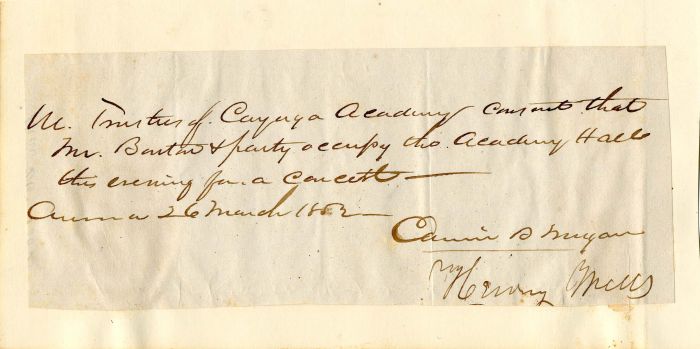 W. Trustees of Cayuga Academy consent that
Mr. Barton & party occupy the Academy Hall
this evening for a concert —
Aurora 26 March 1852 —
Edwin B Morgan
Henry Mills